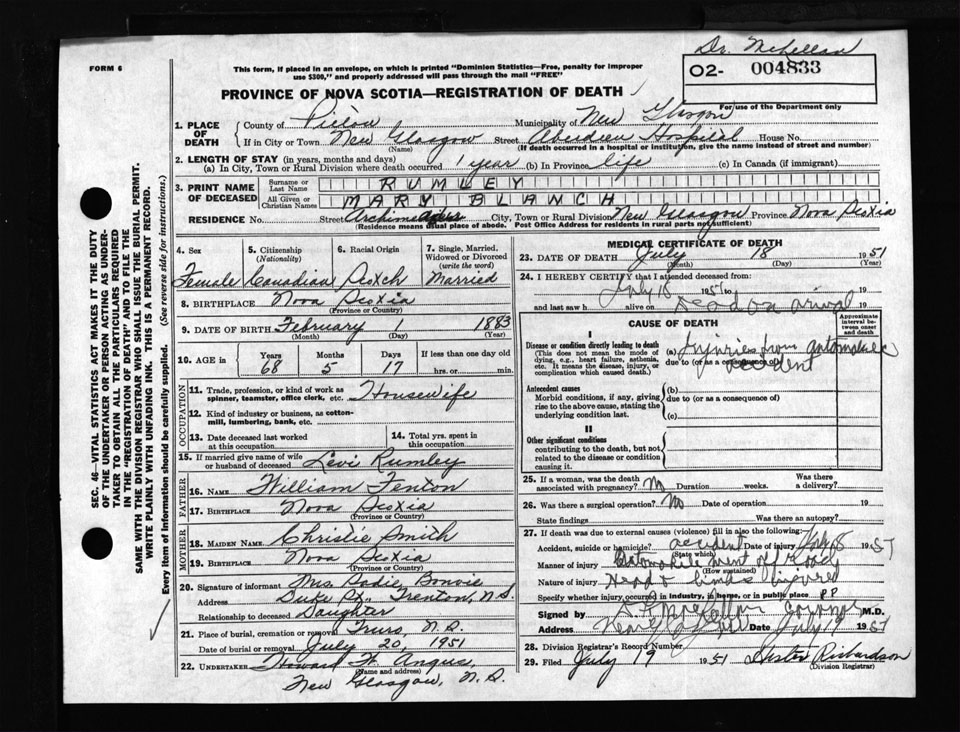 Dr. McLellan
02- 004833
For use of the Department only
FORM 6
This form, if placed in an envelope, on which is printed "Dominion Statistics—Free, penalty for improper
use $300," and properly addressed will pass through the mail "FREE"
PROVINCE OF NOVA SCOTIA—REGISTRATION OF DEATH
SEC. 46—VITAL STATISTICS ACT MAKES IT THE DUTY
OF THE UNDERTAKER OR PERSON ACTING AS UNDER-
TAKER TO OBTAIN ALL THE PARTICULARS REQUIRED
IN THE "REGISTRATION OF DEATH" AND TO FILE THE
SAME WITH THE DIVISION REGISTRAR WHO SHALL ISSUE THE BURIAL PERMIT.
WRITE PLAINLY WITH UNFADING INK. THIS IS A PERMANENT RECORD.
Every item of information should be carefully supplied. (See reverse side for instructions.)
1. PLACE OF DEATH
County of Pictou Municipality of New Glasgow
If in City or Town New Glasgow Street Aberdeen Hospital House No.
(Name) (If death occurred in a hospital or institution, give the name instead of street and number)
2. LENGTH OF STAY (in years, months and days)
(a) In City, Town or Rural Division where death occurred 1 year (b) In Province life (c) In Canada (if immigrant)
3. PRINT NAME OF DECEASED
Surname or Last Name RUMLEY
All Given or Christian Names MARY BLANCH
RESIDENCE No. Street City, Town or Rural Division New Glasgow Province Nova Scotia
(Residence means usual place of abode. Post Office Address for residents in rural parts not sufficient)
4. Sex 5. Citizenship (Nationality) 6. Racial Origin 7. Single, Married, Widowed or Divorced (write the word)
Female Canadian Scotch Married
8. BIRTHPLACE Nova Scotia
(Province or Country)
9. DATE OF BIRTH February 1 1883
(Month) (Day) (Year)
10. AGE in Years Months Days If less than one day old
68 5 17 hrs. or min.
OCCUPATION
11. Trade, profession, or kind of work as spinner, teamster, office clerk, etc. Housewife
12. Kind of industry or business, as cotton-mill, lumbering, bank, etc.
13. Date deceased last worked at this occupation
14. Total yrs. spent in this occupation
15. If married give name of wife or husband of deceased Levi Rumley
FATHER
16. NAME William Fenton
17. BIRTHPLACE Nova Scotia
(Province or Country)
MOTHER
18. MAIDEN NAME Christie Smith
19. BIRTHPLACE Nova Scotia
(Province or Country)
20. Signature of informant Mrs. Sadie Bonvie
Address Duke St., Trenton, N.S.
Relationship to deceased Daughter
21. Place of burial, cremation or removal Truro, N.S.
Date of burial or removal July 20, 1951
22. UNDERTAKER Howard H. Angus,
(Name and address)
New Glasgow, N.S.
MEDICAL CERTIFICATE OF DEATH
23. DATE OF DEATH July 18 1951
(Month) (Day) (Year)
24. I HEREBY CERTIFY that I attended deceased from:
July 18 1951 to 19
and last saw h alive on Dead on arrival 19
CAUSE OF DEATH
Approximate interval between onset and death
I
Disease or condition directly leading to death
(This does not mean the mode of dying, e.g., heart failure, asthenia, etc. It means the disease, injury, or complication which caused death.)
(a) Injuries from automobile accident
due to (or as a consequence of)
Antecedent causes
Morbid conditions, if any, giving rise to the above cause, stating the underlying condition last.
(b)
due to (or as a consequence of)
(c)
II
Other significant conditions
contributing to the death, but not related to the disease or condition causing it.
25. If a woman, was the death associated with pregnancy? No Duration weeks. Was there a delivery?
26. Was there a surgical operation? No Date of operation
State findings Was there an autopsy?
27. If death was due to external causes (violence) fill in also the following:
Accident, suicide or homicide? accident Date of injury July 18 1951
(State which)
Manner of injury Automobile went off road
(How sustained)
Nature of injury Head & limbs injured
Specify whether injury occurred in industry, in home, or in public place PP
Signed by coroner M.D.
Address Date July 19 1951
28. Division Registrar's Record Number
29. Filed July 19 1951 Richardson
(Division Registrar)